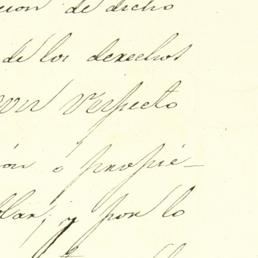 cion de dicho
de los derechos
con respecto
ón o propie-
llar; y por lo